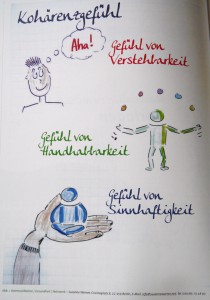 Kohärenzgefühl
Aha!
Gefühl von
Verstehbarkeit
Gefühl von
Handhabbarkeit
Gefühl von
Sinnhaftigkeit